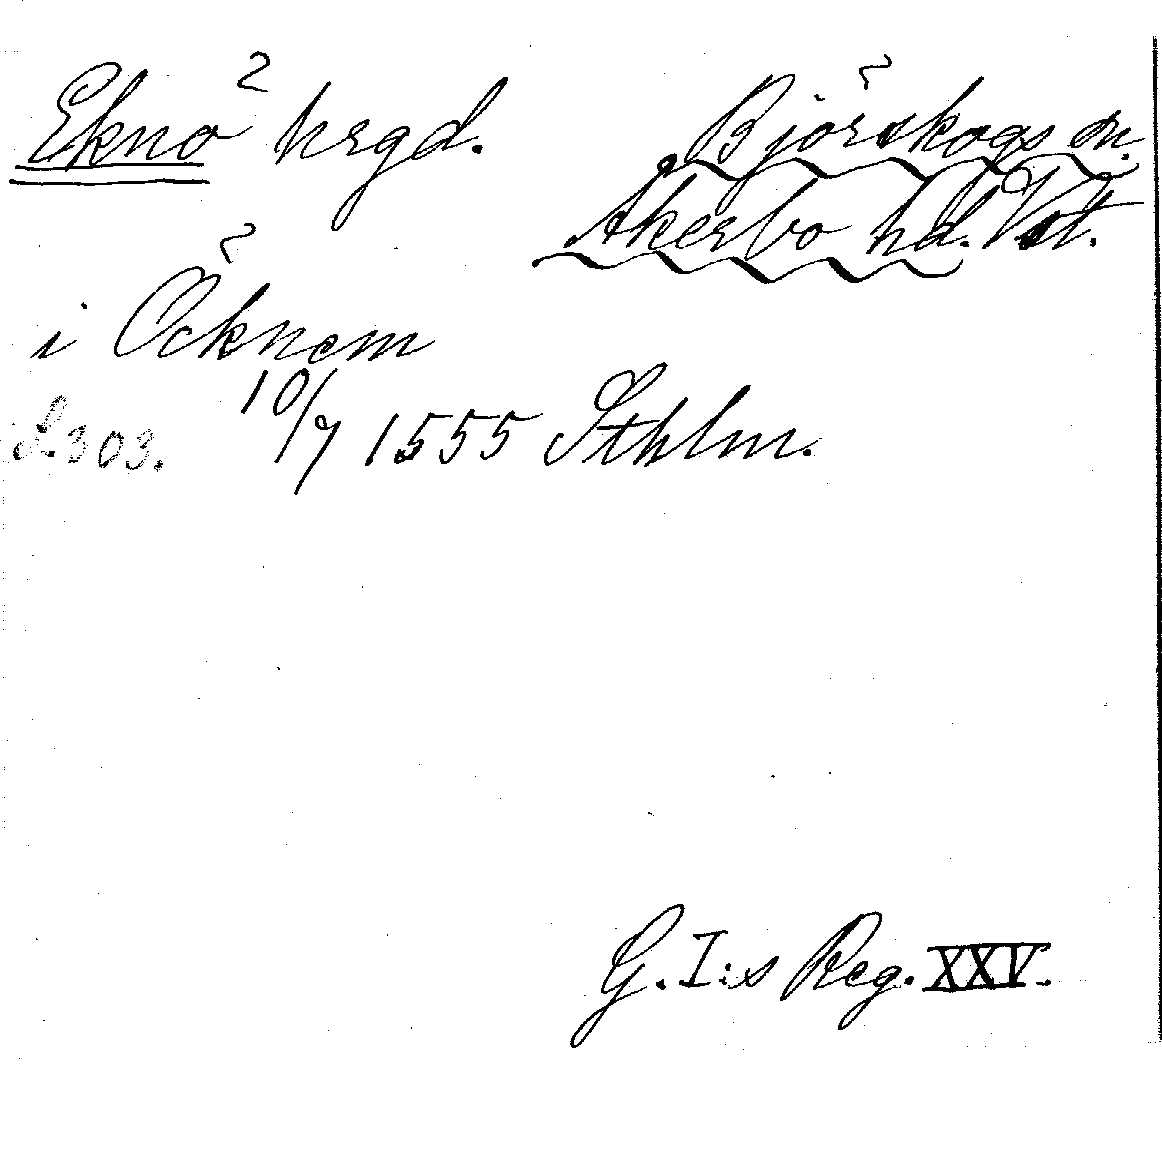 Eknö hrgd. Björskogs sn.
Åkerbo hd. Vstl.
i Öcknem
S. 303. 10/7 1555 Sthlm.
G. I:s Reg. XXV.